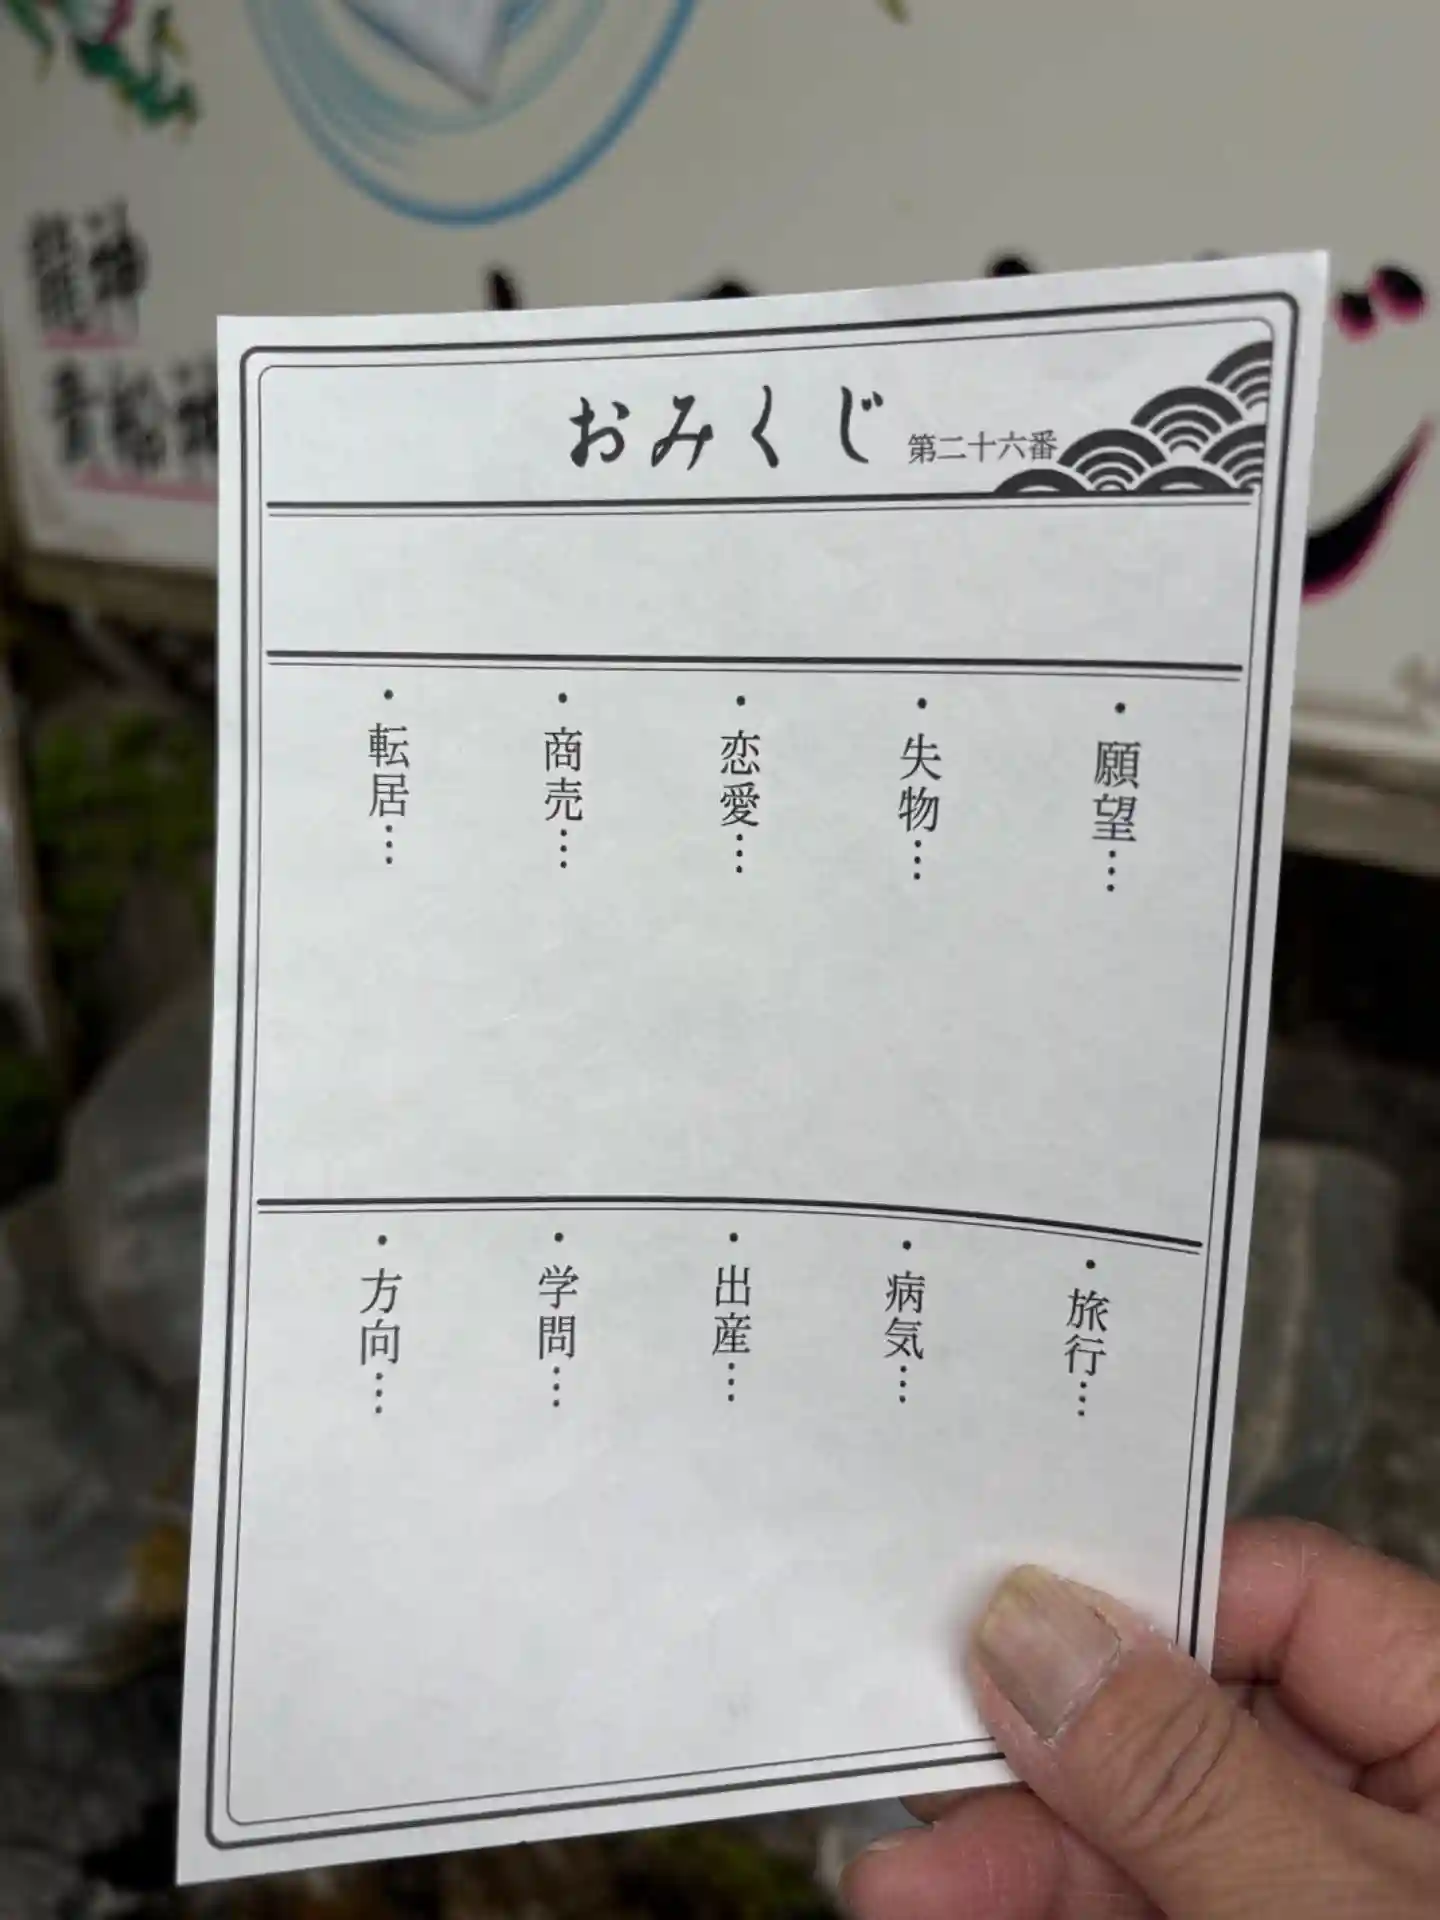 おみくじ 第二十六番
・願望…
・失物…
・恋愛…
・商売…
・転居…
・旅行…
・病気…
・出産…
・学問…
・方向…
龍神